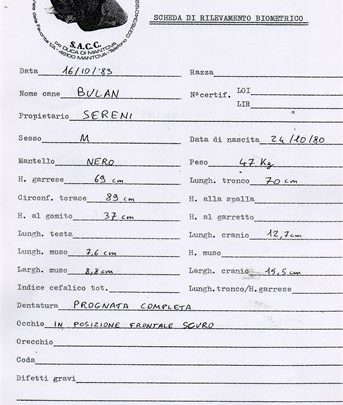 SCHEDA DI RILEVAMENTO BIOMETRICO
S.A.C.C.
Data 16/10/'83 Razza
Nome cane BULAN N°certif. LOI
LIR
Propietario SERENI
Sesso M Data di nascita 24/10/80
Mantello NERO Peso 47 Kg
H. garrese 69 cm Lungh. tronco 70 cm
Circonf. torace 89 cm H. alla spalla
H. al gomito 37 cm H. al garretto
Lungh. testa Lungh. cranio 12,7cm
Lungh. muso 7,6 cm H. muso
Largh. muso 8,8 cm Largh. cranio 15,5 cm
Indice cefalico tot. Lungh.tronco/H.garrese
Dentatura PROGNATA COMPLETA
Occhio IN POSIZIONE FRONTALE SCURO
Orecchio
Coda
Difetti gravi